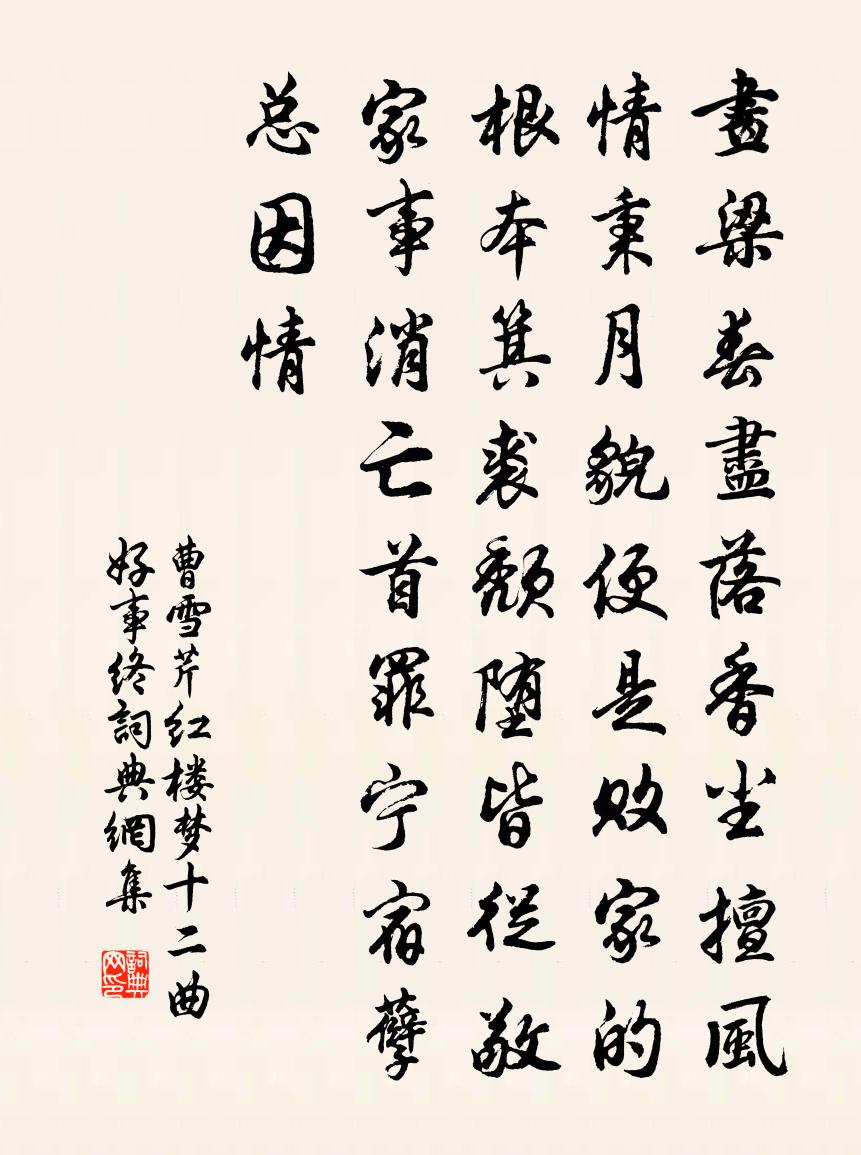 畫梁春盡落香尘擅風
情秉月貌便是败家的
根本箕裘颓堕皆從敬
家事消亡首罪宁宿孽
总因情
曹雪芹红楼梦十二曲
好事终詞典網集
詞典网印